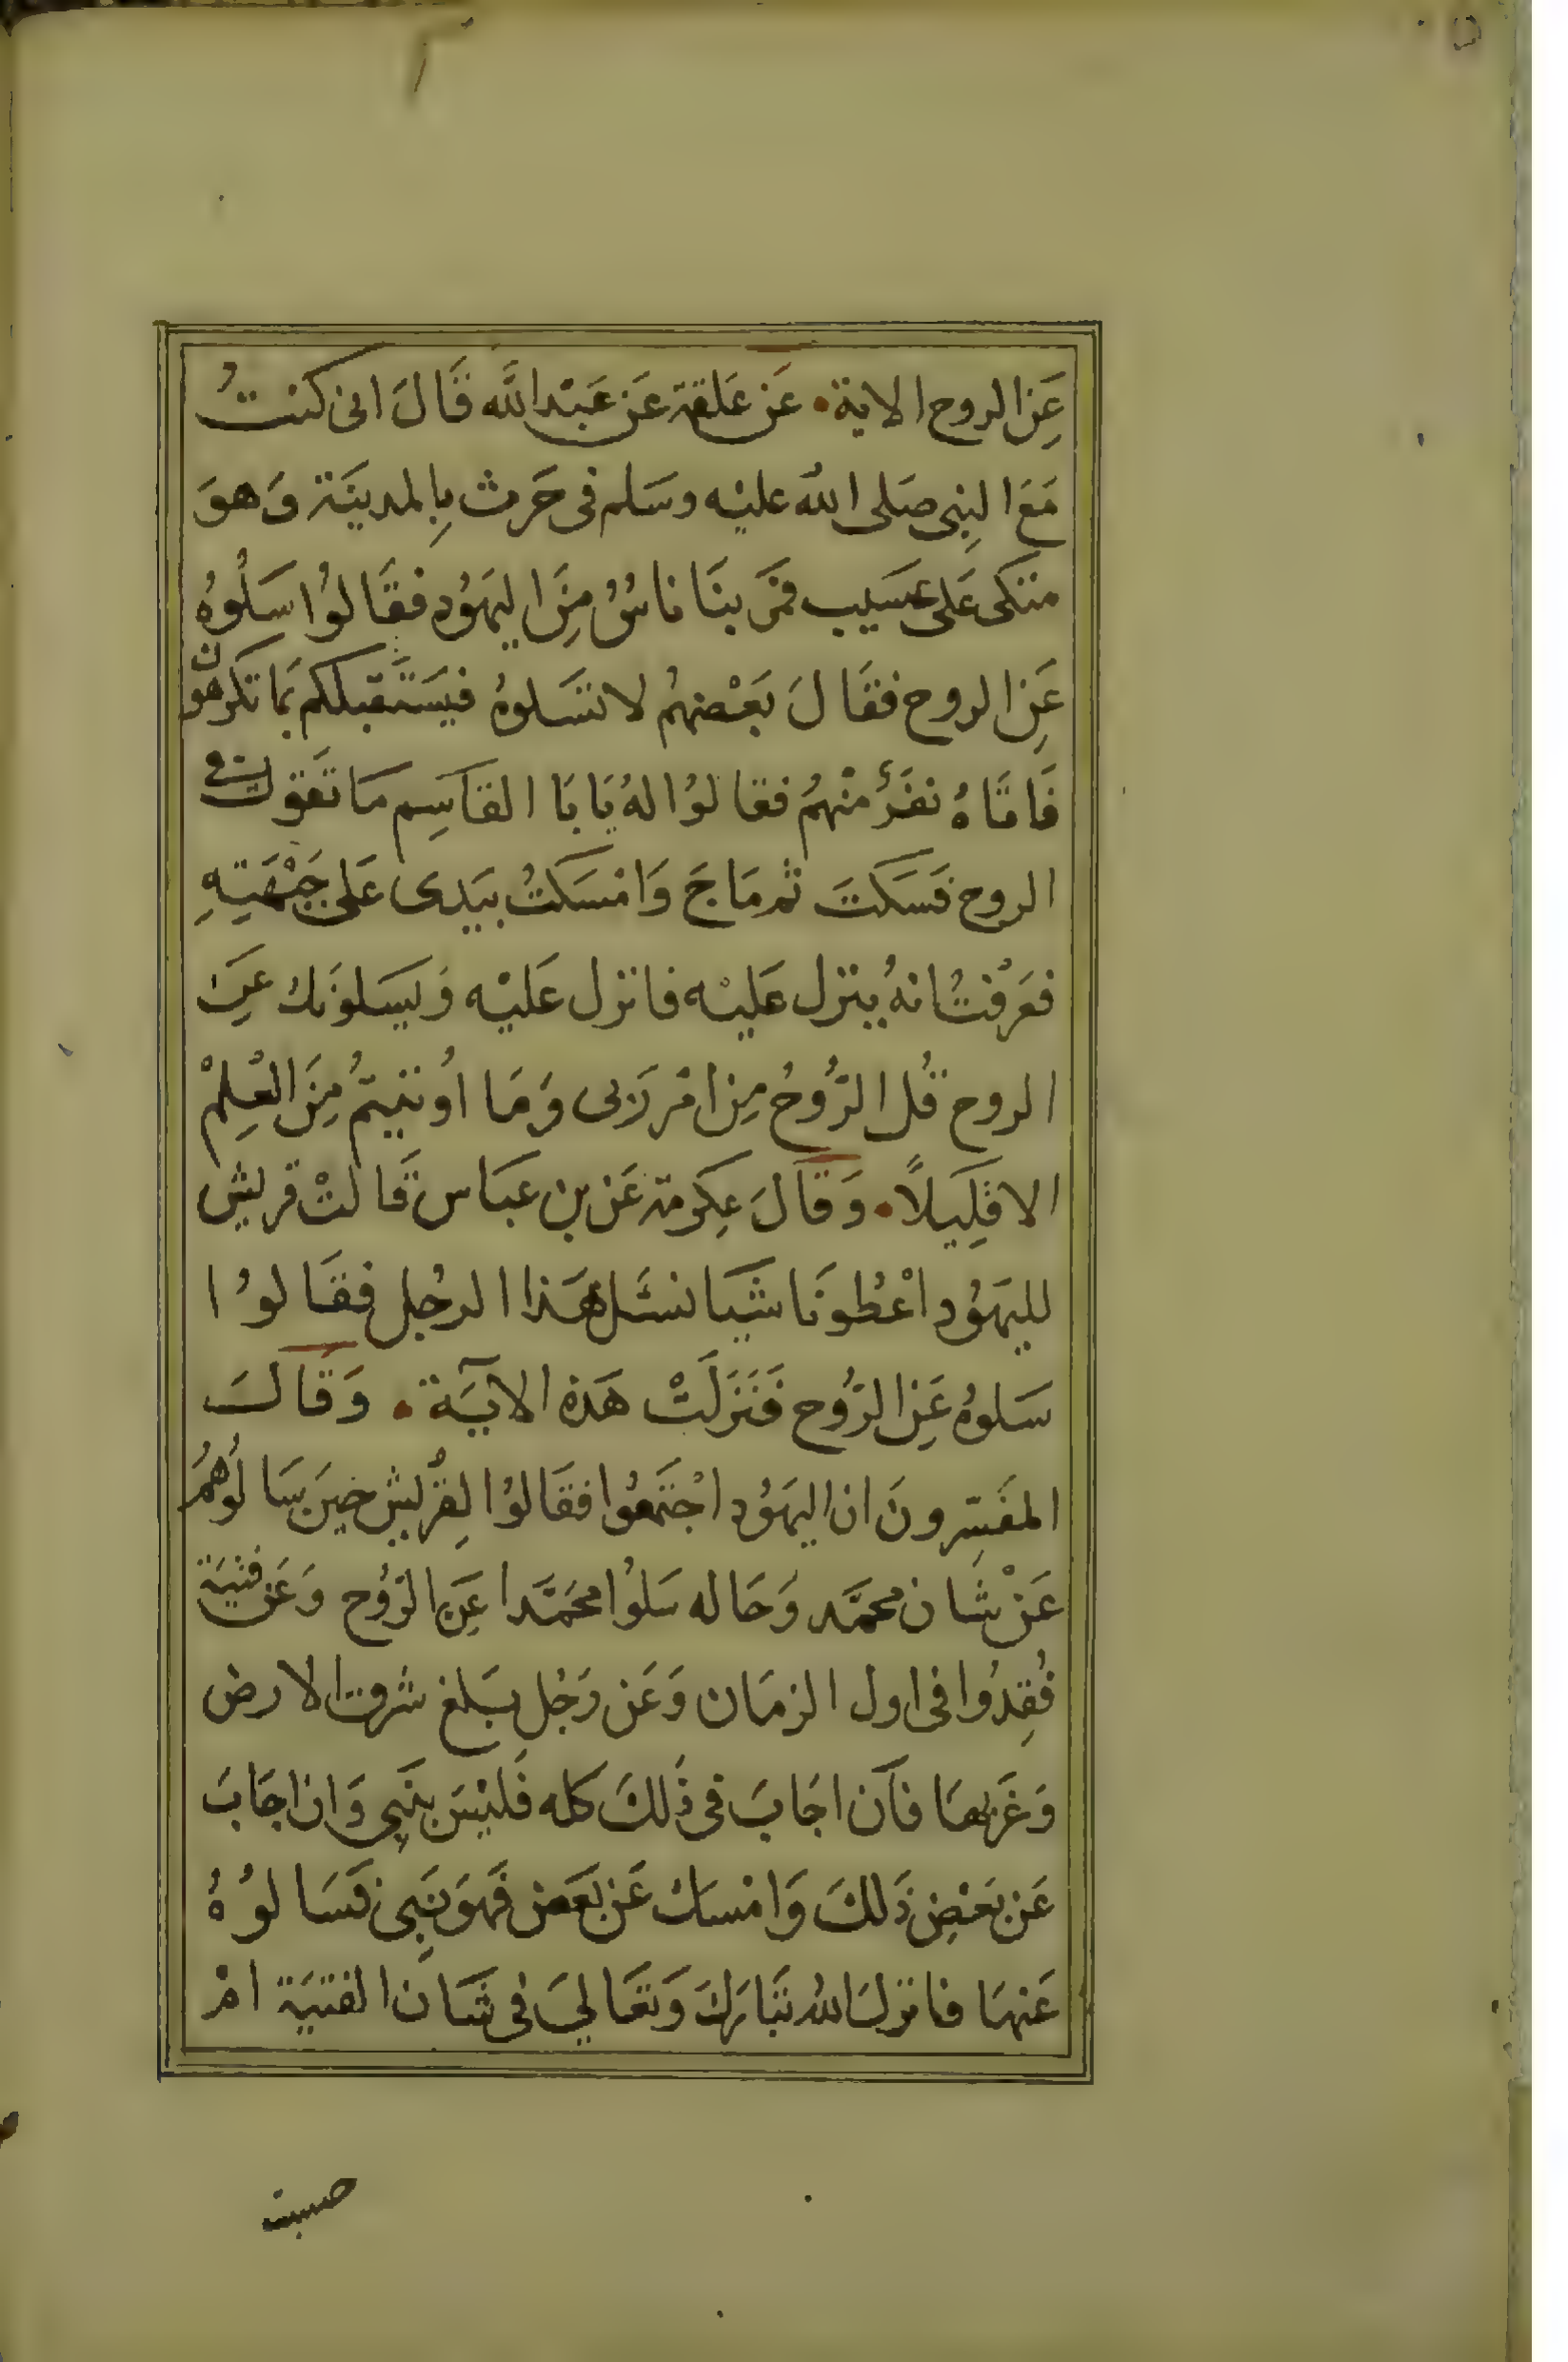 عَنِ الروح الاية • عَن عَلقمة عَن عَبْد اللَّه قَالَ انى كنتُ
مَعَ النِبى صَلى اللّه عليْه وسَلم فى حَرث بِالمدينَة وَهوَ
متكى عَلى عسَيب فمَر بنَا نَاسٌ مِنَ اليهَوُدِ فقَالوُا سَلُوهُ
عَنِ الروح فقَالَ بَعْضهمُ لا تسَلوهُ فيَستَقبلكم بمَا تكرهون
فَاتَاهُ نفَرٌ منْهمُ فقالوُا لهُ يَابَا القاسِم مَا تَقول فى
الروح فسَكتَ ثم مَاجَ وَامْسَكتُ بيَدى عَلى جَبْهَتِهِ
فعَرْفتُ انهُ ينزل عَليْه فانزل عَليْه وَيسَلونَك عَنِ
الروح قُل الرُّوحُ مِن امْر رَبى وَمَا اُوتيتمُ مِنَ العْلِمْ
الا قلِيلاً • وَقالَ عِكرمة عَن بن عبَاس قَالتْ قريش
لليهَوُد اعْطُونَا شيَا نسَل هَذا الرجُل فقَالوُا
سَلوهُ عَنِ الرُّوح فَنَزَلَتْ هَذه الآيَة • وَقَالَ
المفَسِرونَ ان اليهَوُد اجْتَمعُوا فقَالوُا لِقرُيش حينَ سَالُوهُمُ
عَنْ شَان محمَّد وَحَاله سَلوُا محَمَّدا عَنِ الرُّوح وَعَن فتيَة
فُقِدُوا فى اول الزمَان وَعَن رَجُلٍ بَلغ شرق الارض
وَغَربهَا فَان اجَابَ فى ذَلكَ كله فَليْسَ بنَبِى وَان اجَابَ
عَن بَعْضِ ذَلكَ وَامْسَك عَن بَعَض فَهوَ نَبِى فسَالوُهُ
عَنهَا فانزلَ اللّه تَبَارَكَ وَتعَالىَ فى شَان الفتيَة امْ